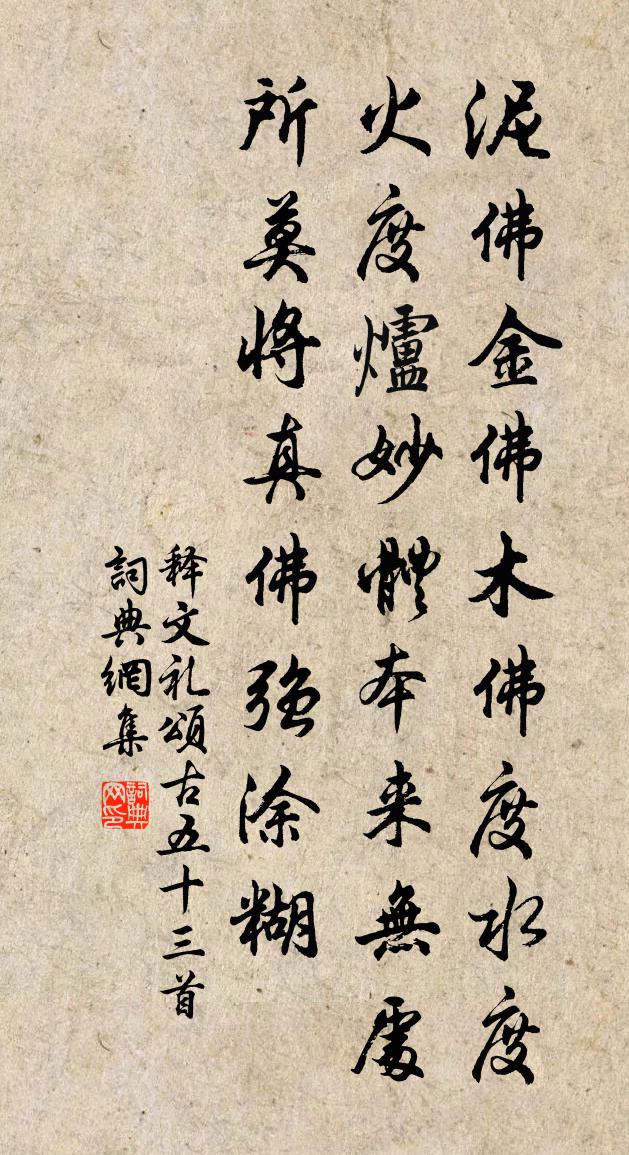 泥佛金佛木佛度水度
火度爐妙體本来無處
所莫將真佛強涂糊
释文礼頌古五十三首
詞典網集
詞典网印